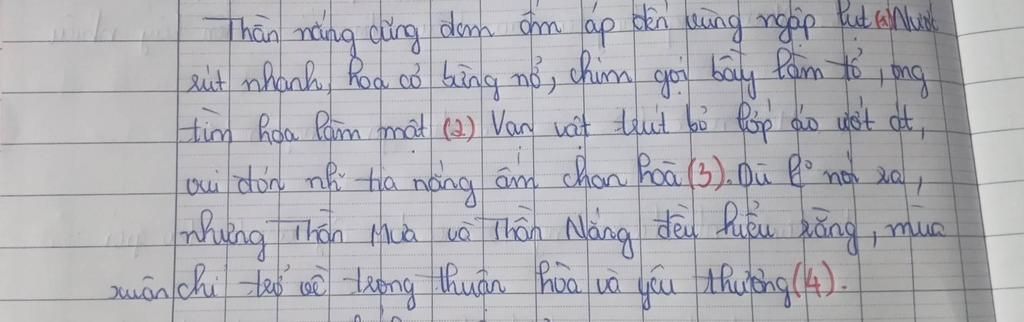 Thần nắng cũng đem ấm áp đến vùng ngập lụt (1) Nước
rút nhanh, hoa cỏ bừng nở, chim gọi bầy làm tổ, ong
tìm hoa làm mật (2) Vạn vật trút bỏ lớp áo ướt át,
vui đón nhì tia nắng ấm chan hoà (3). Dù ở nơi xa,
nhưng Thần Mưa và Thần Nắng đều hiểu rằng, mùa
xuân chỉ trở về trong thuận hòa và yêu thương (4).